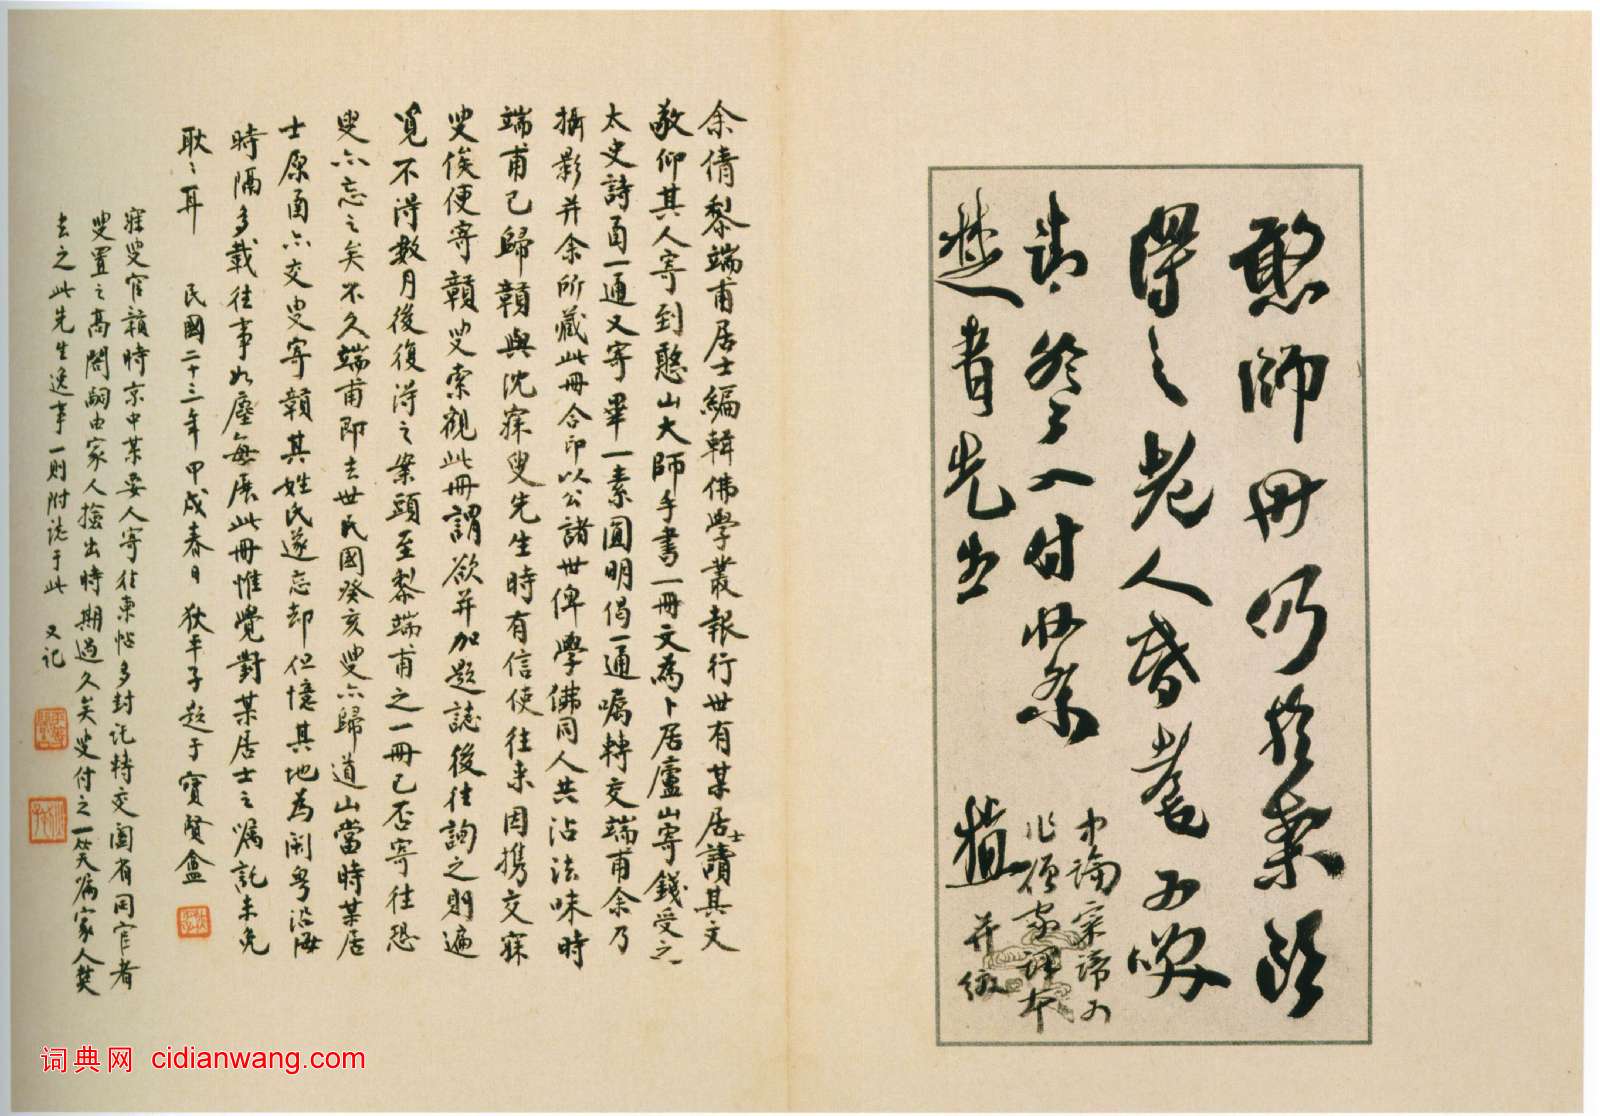 憨師冊仍於案頭
得之老人昏耄可笑
請登入付收條
楚青先生
植
中論宗諦可
並繳
余倩黎端甫居士編輯佛學叢報行世有某居士讀其文
敬仰其人寄到憨山大師手書一冊文為卜居廬山寄錢受之
太史詩函一通又寄畢一素圓明偈一通囑轉交端甫余乃
攝影并余所藏此冊合印以公諸世俾學佛同人共沾法味時
端甫已歸贛與沈寐叟先生時有信使往来因攜交寐
叟俟便寄贛叟索觀此冊謂欲并加題誌後往詢之則遍
覓不得數月後復得之案頭至黎端甫之一冊已否寄往恐
叟亦忘之矣不久端甫即去世民國癸亥叟亦歸道山當時某居
士原函亦交叟寄贛其姓氏遂忘却但憶其地為閩粤沿海
時隔多載往事如塵每展此冊惟覺對某居士之囑託未免
耿々耳 民國二十三年甲戌春日 狄平子題于寶賢盒
寐叟官贛時京中某要人寄往柬帖多封託轉交闔省同官者
叟置之高閣嗣由家人撿出時期過久矣叟付之一笑囑家人焚
去之此先生逸事一則附誌于此 又記
词典网 cidianwang.com